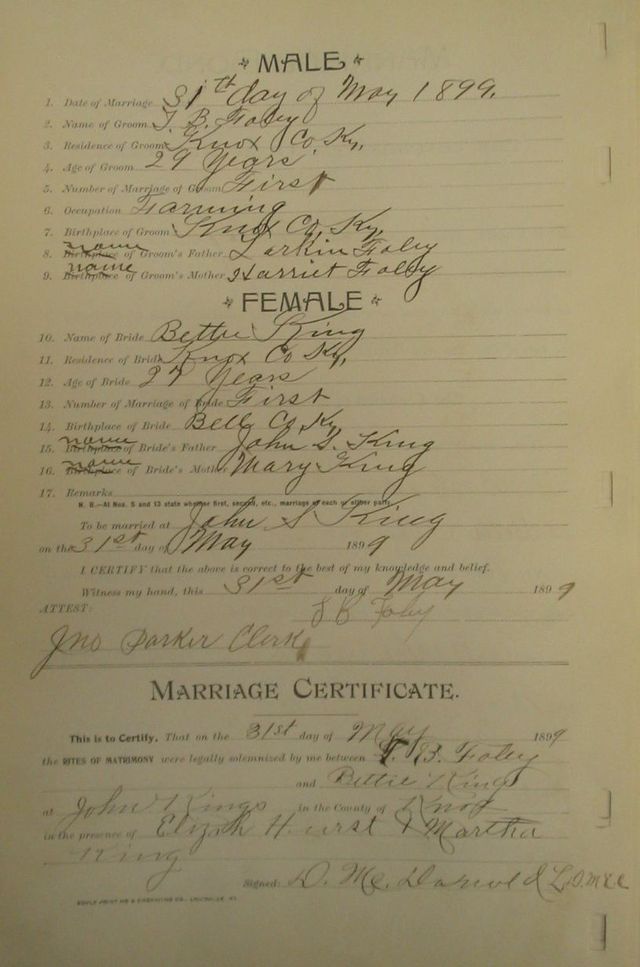 MALE
1. Date of Marriage 31th day of May 1899.
2. Name of Groom T. B. Foley
3. Residence of Groom Knox Co. Ky,
4. Age of Groom 29 Years
5. Number of Marriage of Groom First
6. Occupation Farming
7. Birthplace of Groom Knox Co, Ky,
name
8. Birthplace of Groom's Father Larkin Foley
name
9. Birthplace of Groom's Mother Harriet Foley
FEMALE
10. Name of Bride Bettie King
11. Residence of Bride Knox Co Ky,
12. Age of Bride 27 Years
13. Number of Marriage of Bride First
14. Birthplace of Bride Bell Co, Ky
name
15. Birthplace of Bride's Father John S. King
name
16. Birthplace of Bride's Mother Mary King
17. Remarks
N. B.—At Nos. 5 and 13 state whether first, second, etc., marriage of each or either party.
To be married at John S King
on the 31st day of May 1899
I CERTIFY that the above is correct to the best of my knowledge and belief.
Witness my hand, this 31st day of May 1899
ATTEST: T B Foley
Jno Parker Clerk
MARRIAGE CERTIFICATE.
This is to Certify, That on the 31st day of May 1899
the RITES OF MATRIMONY were legally solemnized by me between T. B. Foley
and Bettie King
at John Kings in the County of Knox
in the presence of Elizah Hurst & Martha
King
Signed: D. Mc.